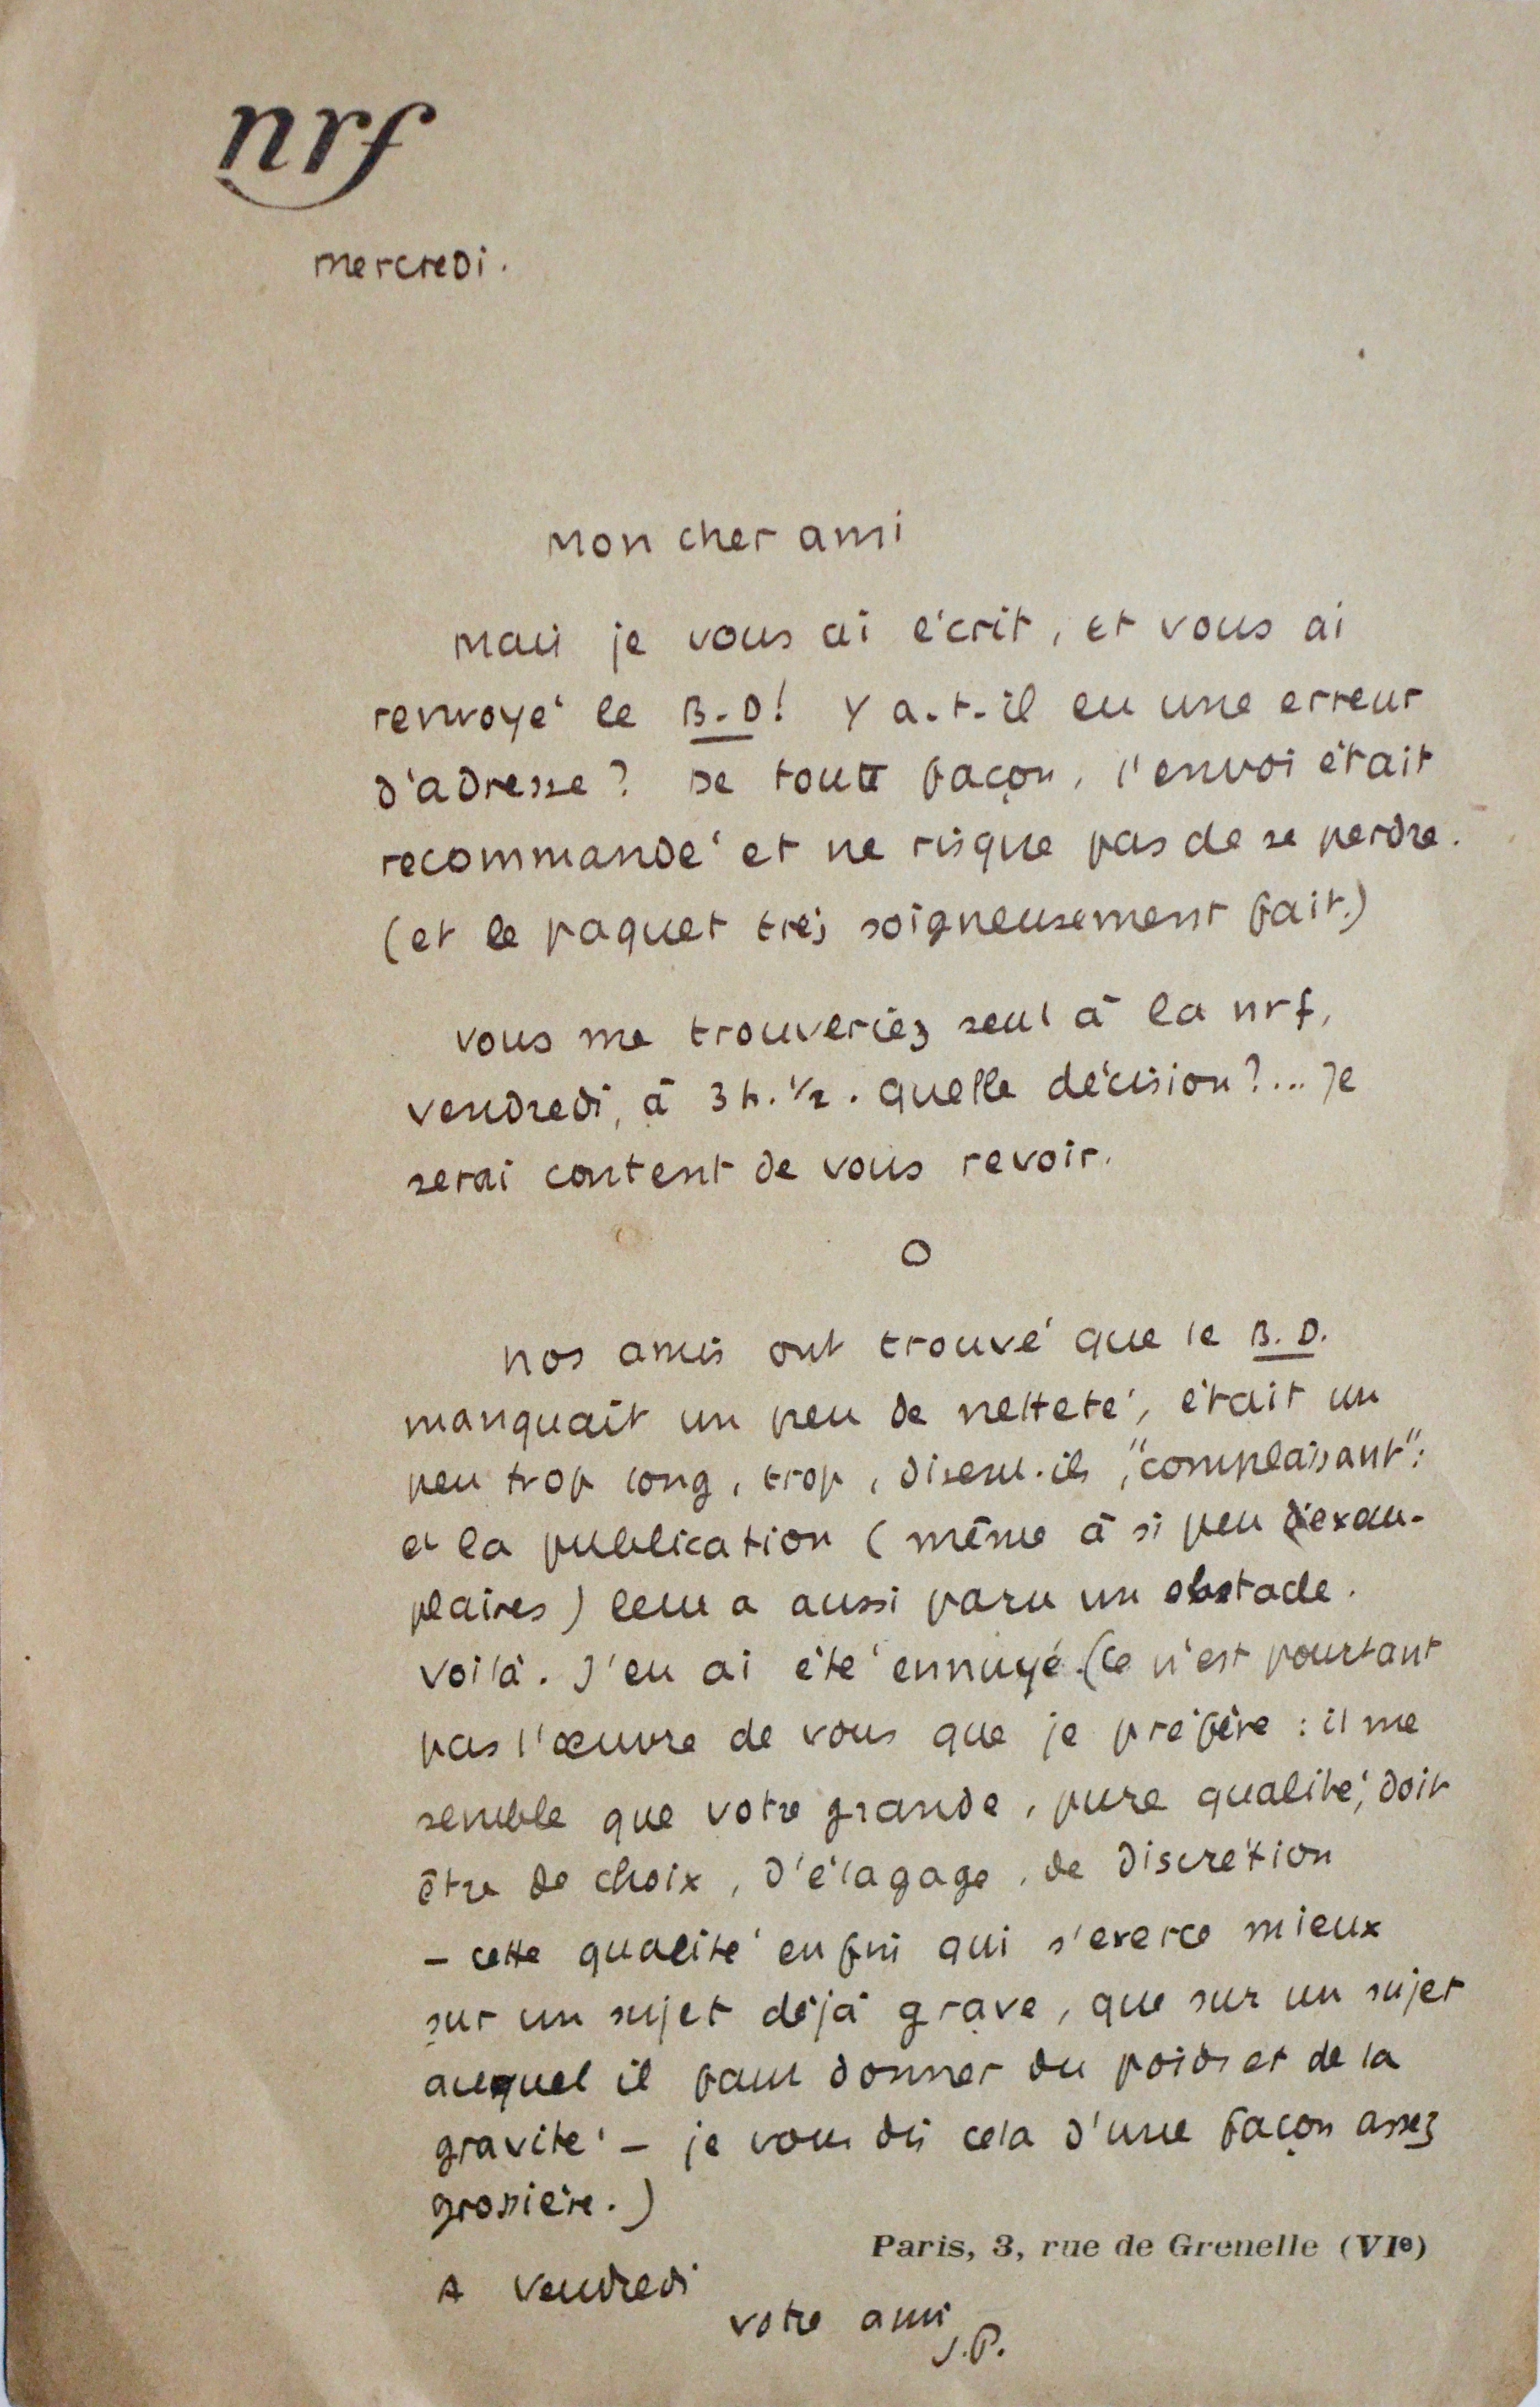 nrf
mercredi.
Mon cher ami
Mais je vous ai écrit, et vous ai
renvoyé le B-D! Y a-t-il eu une erreur
d'adresse? De toute façon, l'envoi était
recommandé et ne risque pas de se perdre.
(et le paquet très soigneusement fait.)
Vous me trouveriez seul à la nrf,
vendredi, à 3 h. 1/2. Quelle décision?... Je
serai content de vous revoir.
O
Nos amis ont trouvé que le B.D.
manquait un peu de netteté, était un
peu trop long, trop, disent-ils, "complaisant":
et la publication (même à si peu d'exem-
plaires) leur a aussi paru un obstacle.
Voilà. J'en ai été ennuyé. (Ce n'est pourtant
pas l'œuvre de vous que je préfère : il me
semble que votre grande, pure qualité, doit
être de choix, d'élagage, de discrétion
– cette qualité enfin qui s'exerce mieux
sur un sujet déjà grave, que sur un sujet
auquel il faut donner du poids et de la
gravité – je vous dis cela d'une façon assez
grossière.)
Paris, 3, rue de Grenelle (VIe)
A vendredi
votre ami
J.P.